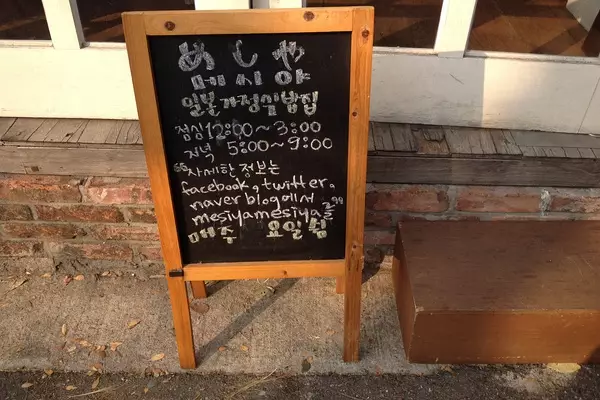 めしや
메시야
일본가정식밥집
점심12:00~3:00
저녁 5:00~9:00
"자세한 정보는
facebook, twitter,
naver blog에서
mesiyamesiya를"
매주 요일쉼